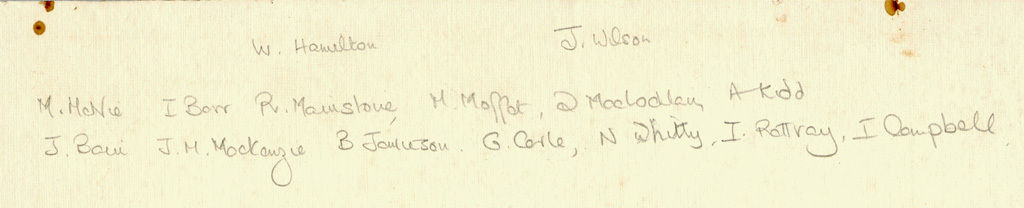 W. Hamilton J. Wilson
M. McNie I Barr R. Mainstone, M. Moffat, D Maclochlan, A Kidd
J. Bain J. M. Mackenzie B Jamieson. G. Carle, N Whitty, I. Rattray, I Campbell